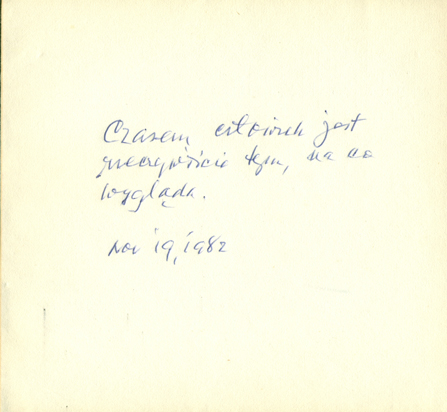 Czasem człowiek jest
rzeczywiście tym, na co
wygląda.
Nov 19, 1982